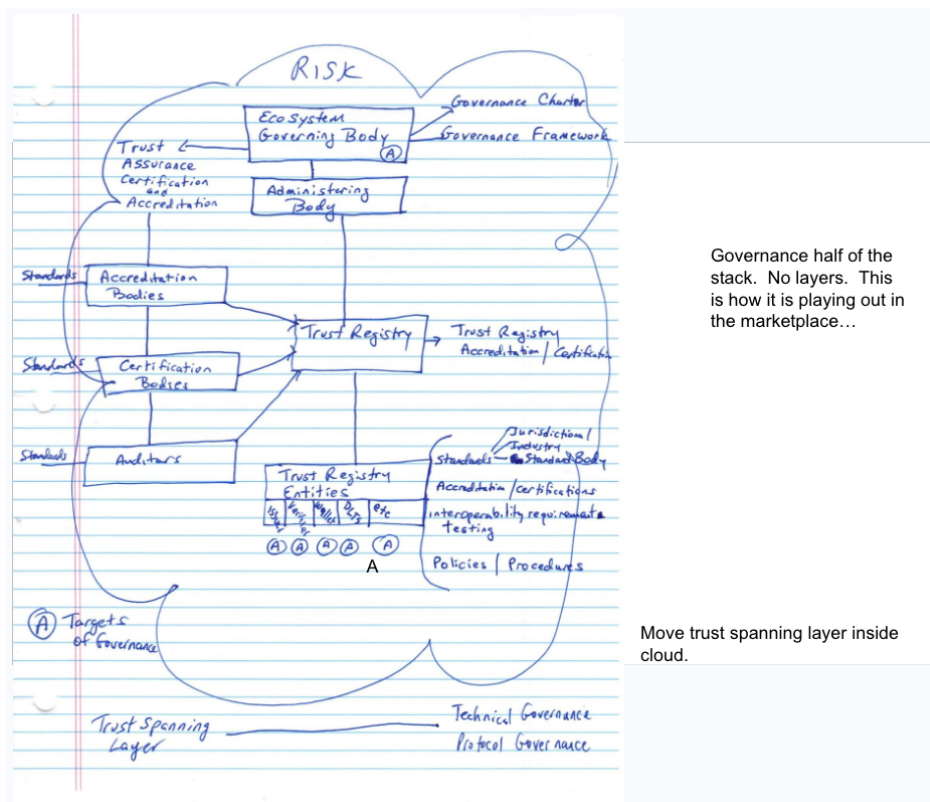 RISK
EcoSystem
Governing Body
A
Governance Charter
Governance Framework
Trust
Assurance
Certification
and
Accreditation
Administering
Body
Standards
Accreditation
Bodies
Trust Registry
Trust Registry
Accreditation / Certificatio
Standards
Certification
Bodies
Standards
Auditors
Trust Registry
Entities
Issuer
Verifier
Wallet
DLTs
etc
A
A
A
A
A
A
Jurisdictional
Industry
Standards
Standard Body
Accreditation / Certifications
interoperability requirements
Testing
Policies / Procedures
A
Targets
of Governance
Trust Spanning
Layer
Technical Governance
Protocol Governance
Governance half of the
stack. No layers. This
is how it is playing out in
the marketplace…
Move trust spanning layer inside
cloud.